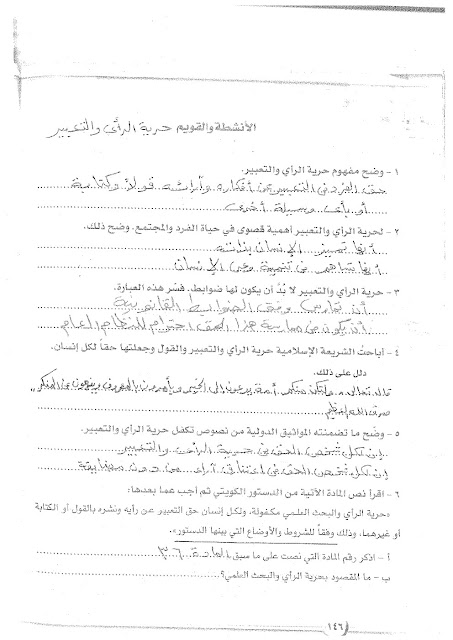 الأنشطة والقويم حرية الرأي والتعبير
١- وضح مفهوم حرية الرأي والتعبير.
حق الفرد في التعبير عن أفكاره وآرائه قولاً وكتابة
أو بأي وسيلة أخرى
٢- لحرية الرأي والتعبير أهمية قصوى في حياة الفرد والمجتمع. وضح ذلك.
أنها تميز الإنسان بذاته
أنها تساهم في تنمية وعي الإنسان
٣- حرية الرأي والتعبير لا بُدَّ أن يكون لها ضوابط. فسّر هذه العبارة.
أن تمارس وفق الضوابط القانونية
أن يكون من ممارسة هذا الحق احترام للنظام العام
٤- أباحت الشريعة الإسلامية حرية الرأي والتعبير والقول وجعلتها حقاً لكل إنسان.
دلل على ذلك.
قال تعالى ولتكن منكم أمة يدعون إلى الخير ويأمرون بالمعروف وينهون عن المنكر
صدق الله العظيم
٥- وضّح ما تضمنته المواثيق الدولية من نصوص تكفل حرية الرأي والتعبير.
إن لكل شخص الحق في حرية الرأي والتعبير
إن لكل شخص الحق في اعتناق آراء من دون مضايقة
٦- اقرأ نص المادة الآتية من الدستور الكويتي ثم أجب عما بعدها:
«حرية الرأي والبحث العلمي مكفولة، ولكل إنسان حق التعبير عن رأيه ونشره بالقول أو الكتابة
أو غيرهما، وذلك وفقاً للشروط والأوضاع التي يبينها الدستور».
أ- اذكر رقم المادة التي نصت على ما سبق المادة ٣٦
ب- ما المقصود بحرية الرأي والبحث العلمي؟
١٤٦